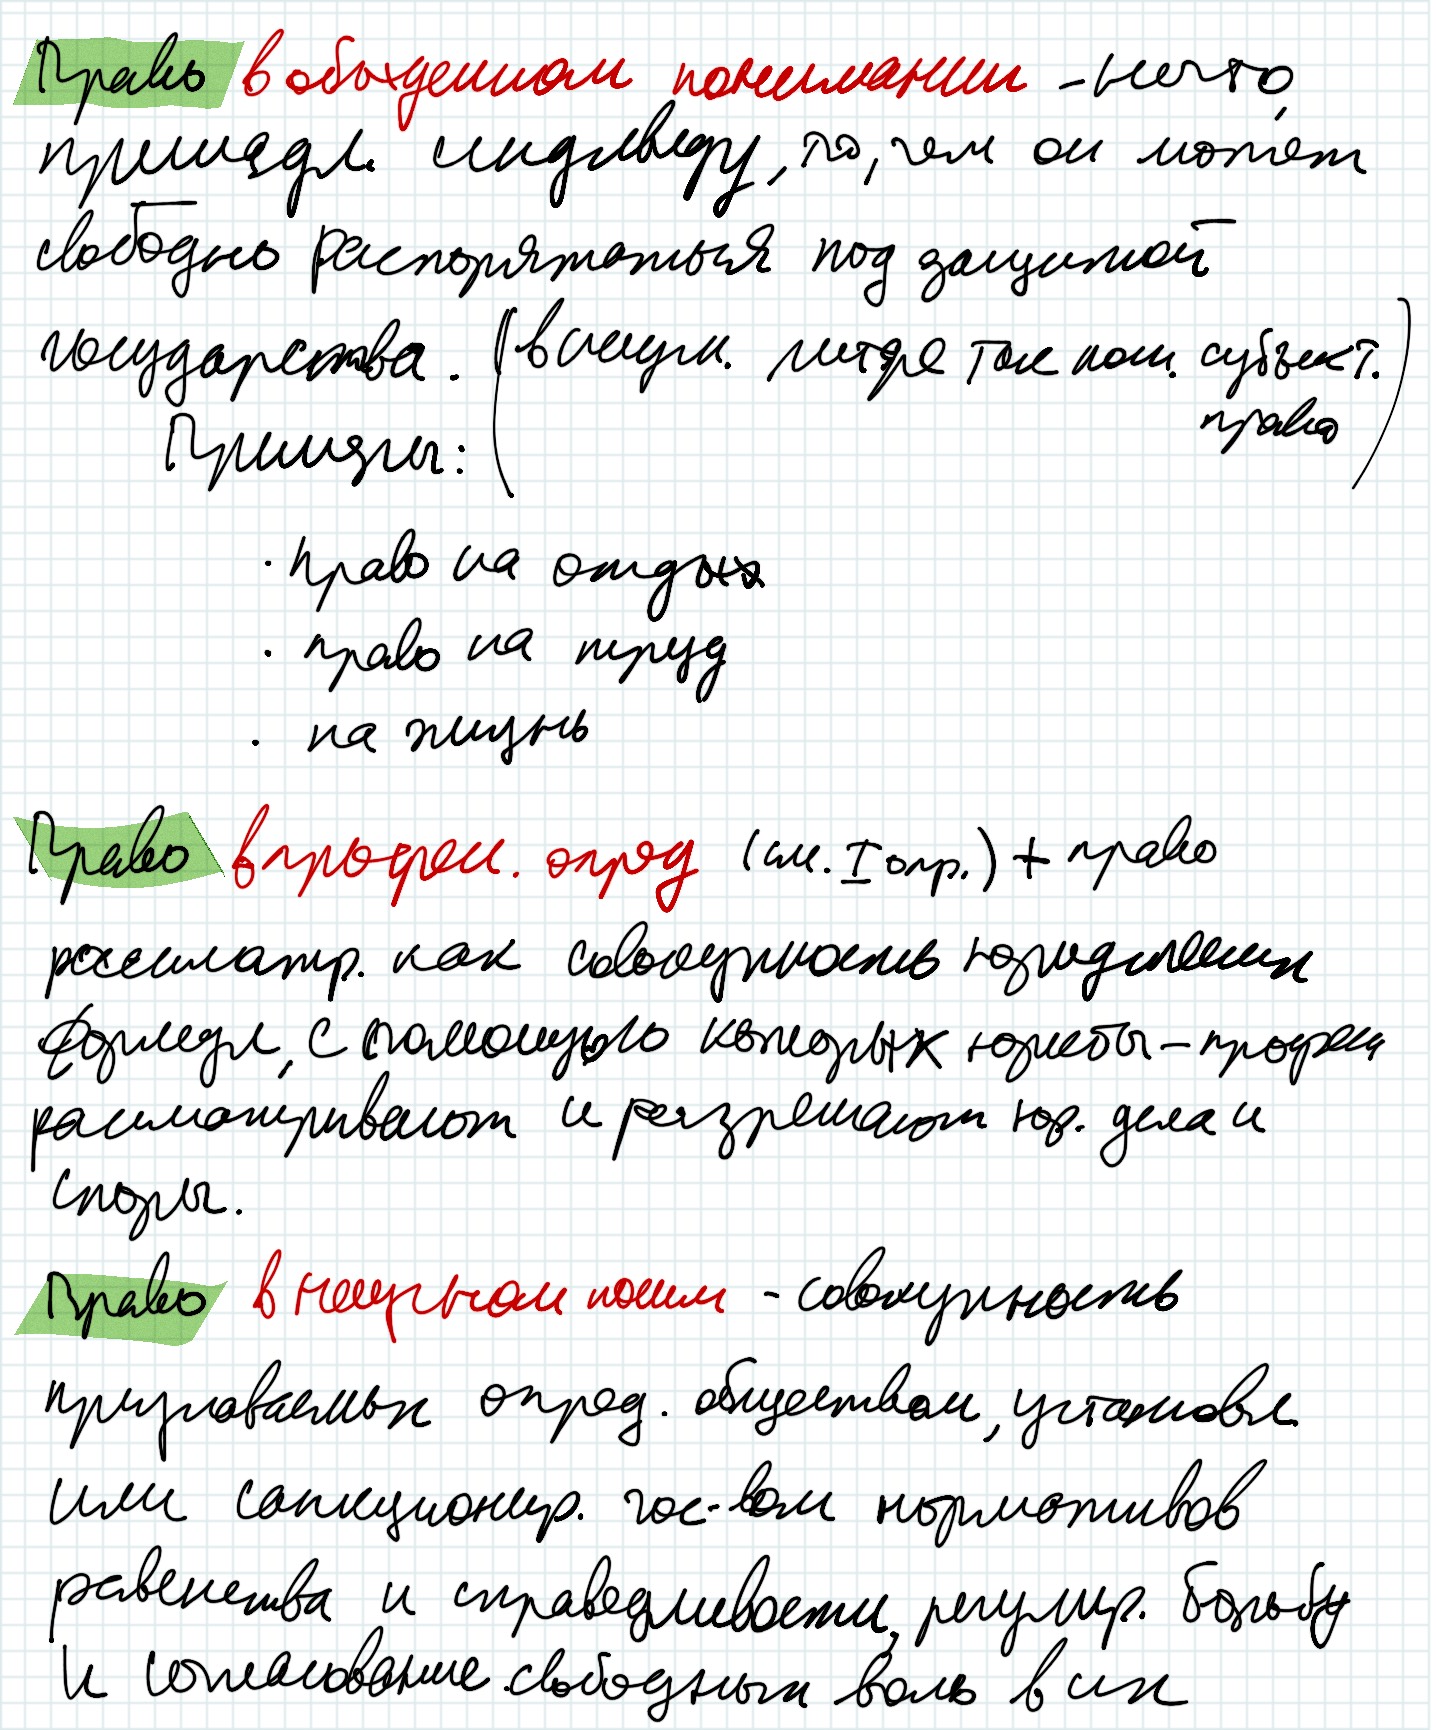 Право в обыденном понимании - нечто,
принадл. индивиду, то, чем он может
свободно распоряжаться под защитой
государства. (в научн. литре так наз. субъект.
право)
Примеры:
· право на отдых
· право на труд
· на жизнь
Право в профес. опред (см. I опр.) + право
рассматр. как совокупность юридических
формул, с помощью которых юристы - профес
рассматривают и разрешают юр. дела и
споры.
Право в научном поним - совокупность
признаваемых опред. обществом, установл.
или санкционир. гос-вом нормативов
равенства и справедливости, регулир. борьбу
и согласование свободных воль в их